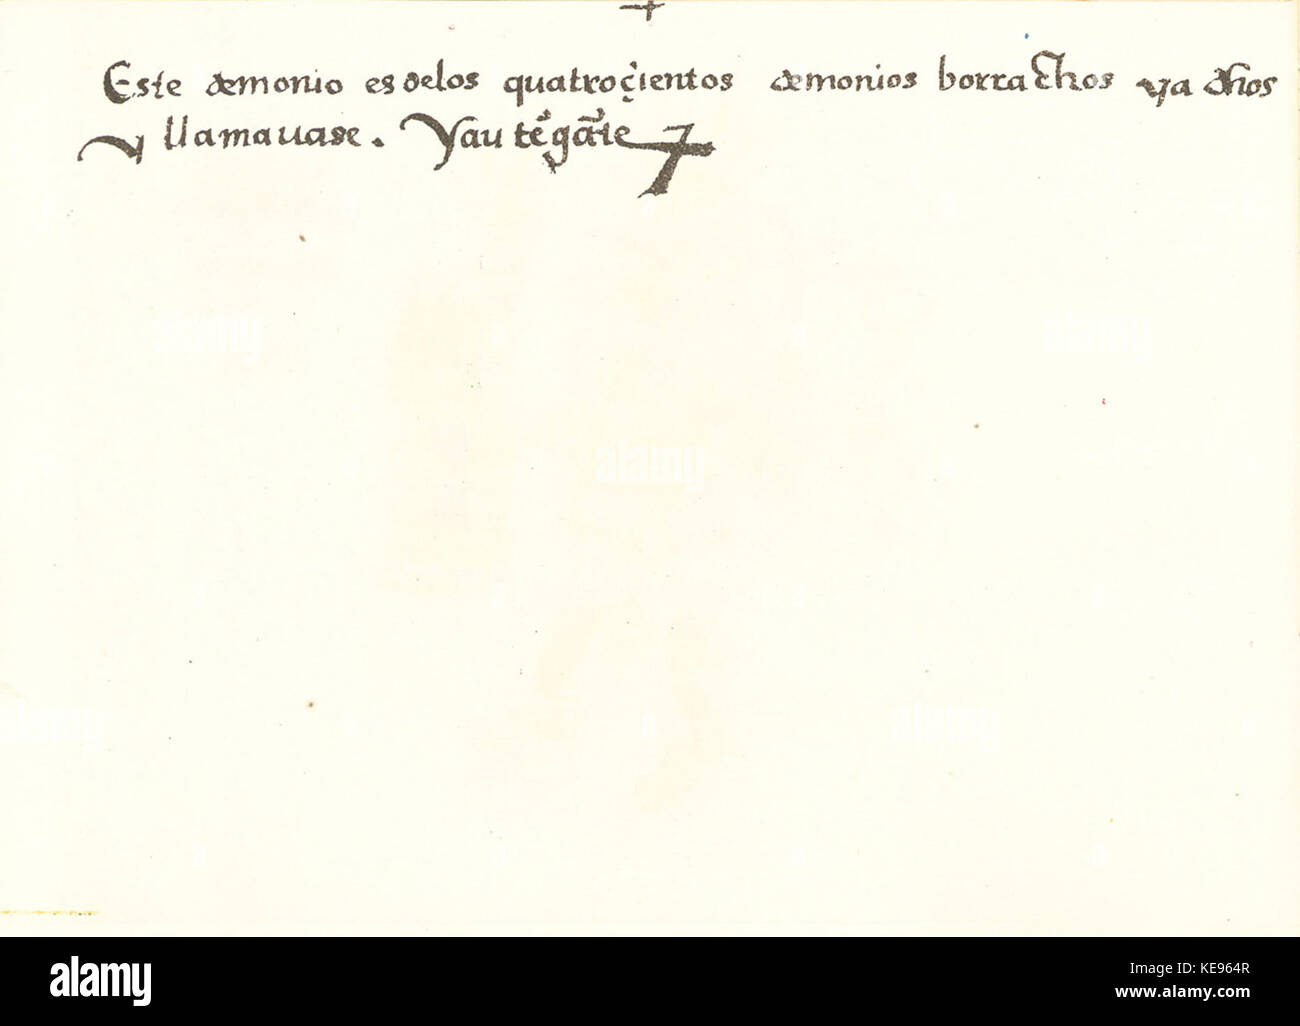 Este demonio es delos quatroçientos demonios borrachos ya dhos
y llamauase. Yautẽgãte
alamy
alamy
alamy
alamy
alamy
alamy
Image ID: KE964R
www.alamy.com